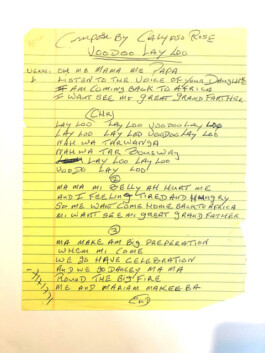 Compose By Calypso Rose
VOODOO LAY LOO
OH ME MAMA ME PAPA
1 LISTEN TO THE VOICE OF YOUR DAUGHTER
I AM COMING BACK TO AFRICA
I WANT SEE ME GREAT GRAND FARTHER
(CHR)
LAY LOO LAY LOO VOODOO LAY LOO
LAY LOO LAY LOO VOODOO LAY LOO
MAH WA TARWANGA
MAH WA TAR
LAY LOO LAY LOO
VOODO LAY LOO
②
MA MA MI BELLY AH HURT ME
AND I FEELING TIRED AND HUNGRY
SO ME WANT COME HOME BACK TO AFRICA
MI WANT SEE MI GREAT GRAND FATHER
③
MA MAKE AM BIG PREPERATION
WHEM MI COME
WE GO HAVE CELEBRATION
AND WE GO DANCEY MA MA
ROUND THE BIG FIRE
ME AND MARIAM MAKEEBA
END